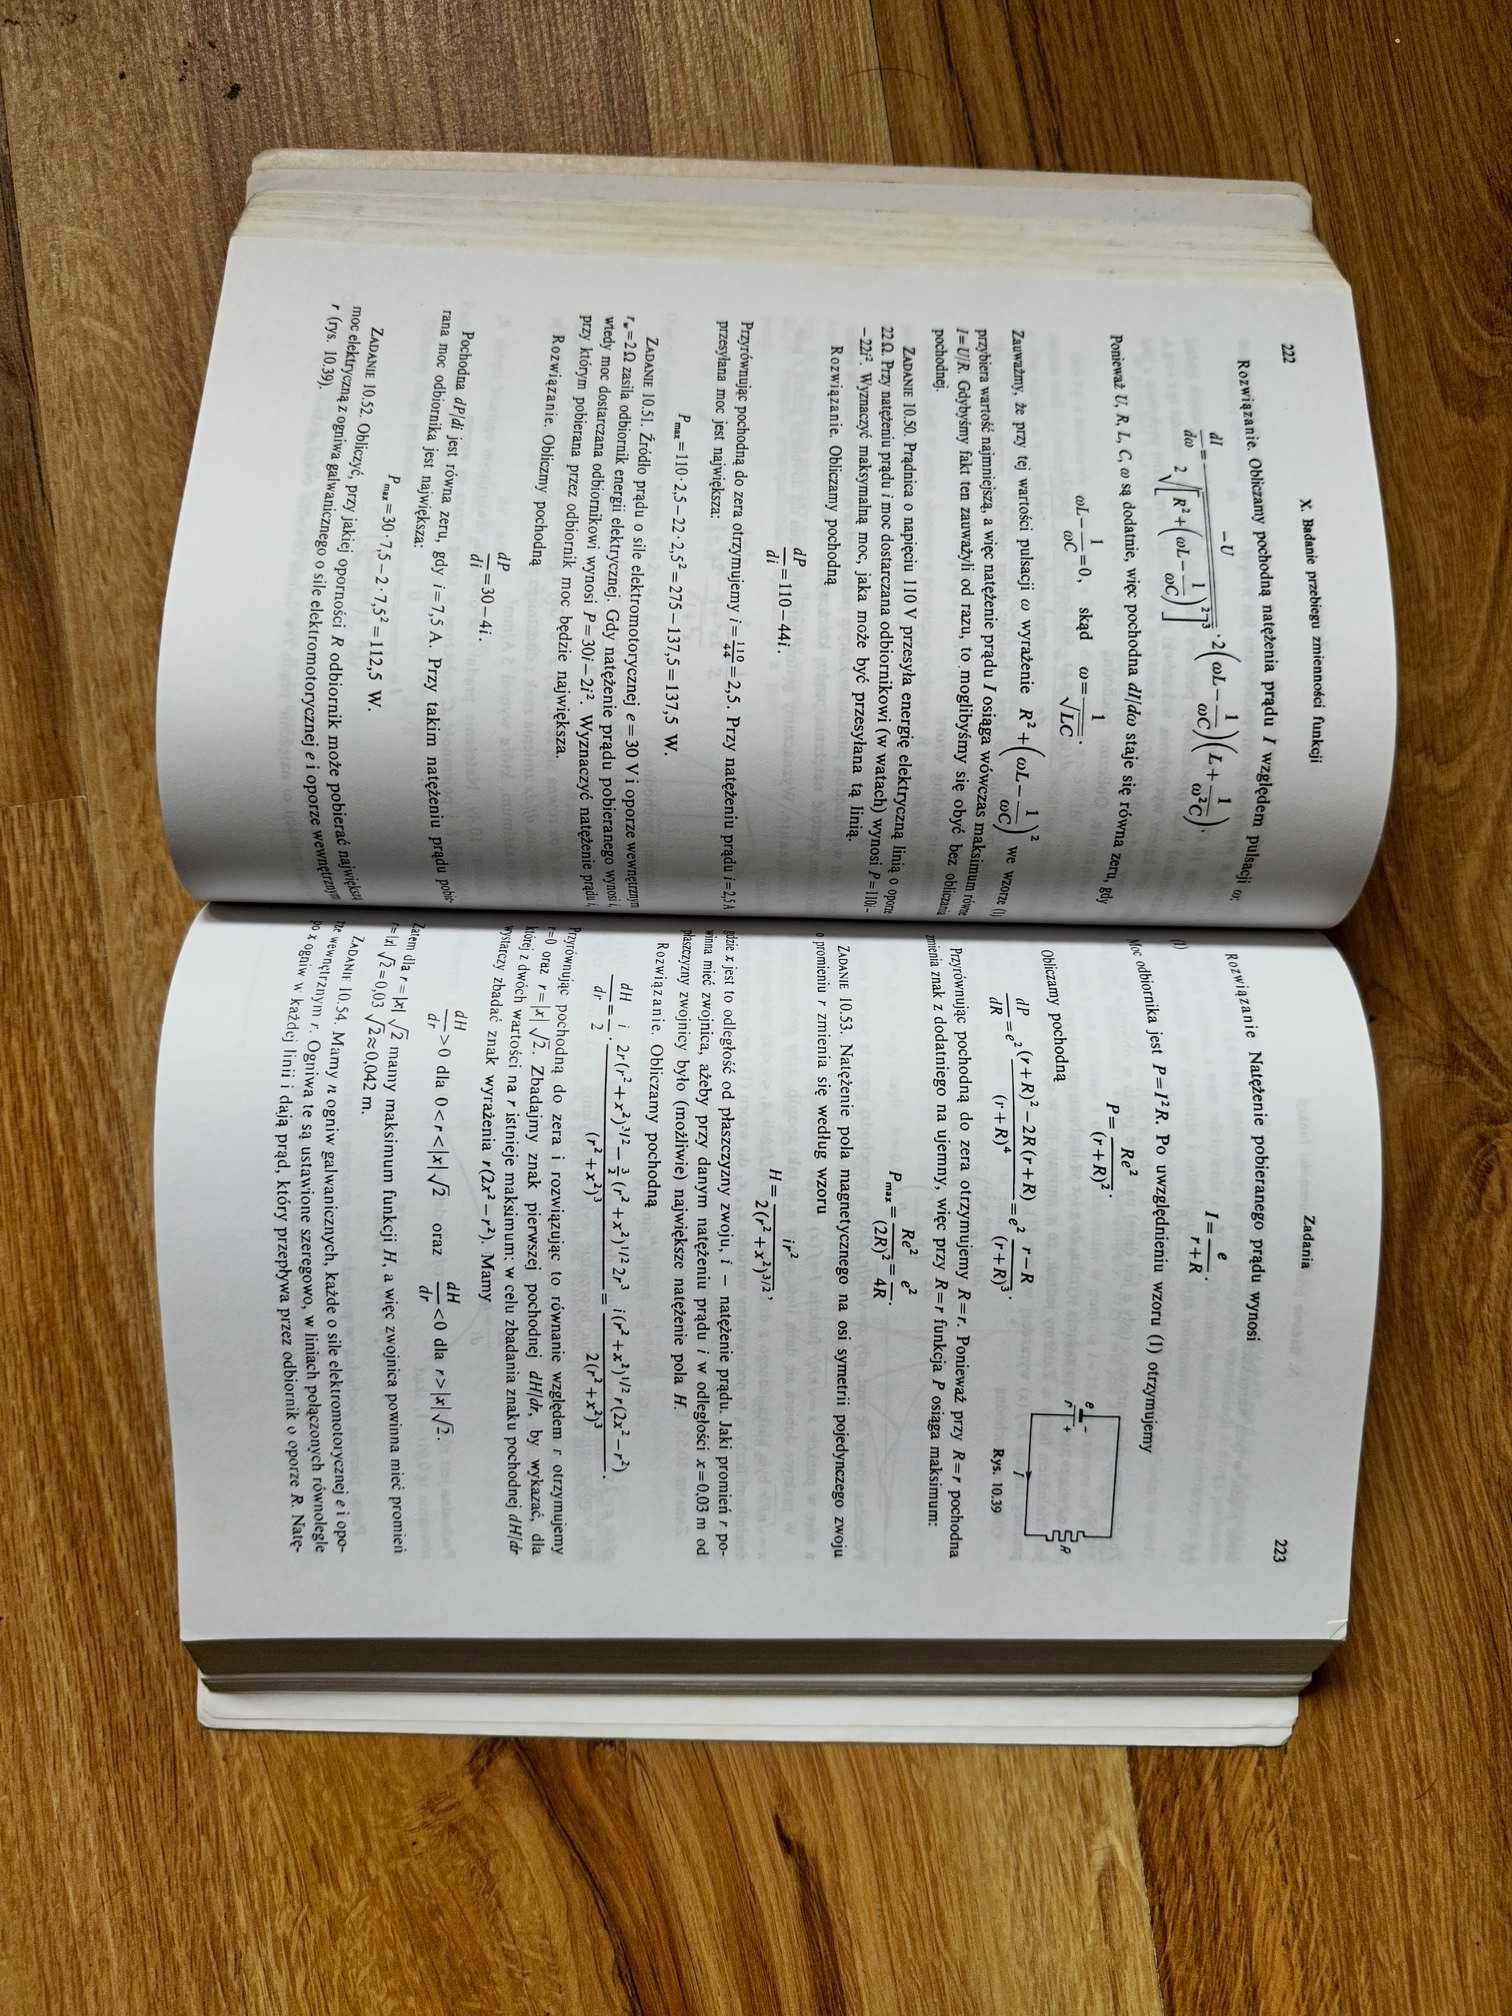 222
X. Badanie przebiegu zmienności funkcji
Rozwiązanie. Obliczamy pochodną natężenia prądu I względem pulsacji ω:
dI/dω = -U / (2√[R²+(ωL-1/(ωC))²]³) · 2(ωL-1/(ωC))(L+1/(ω²C)).
Ponieważ U, R, L, C, ω są dodatnie, więc pochodna dI/dω staje się równa zeru, gdy
ωL-1/(ωC)=0, skąd ω=1/√(LC).
Zauważmy, że przy tej wartości pulsacji ω wyrażenie R²+(ωL-1/(ωC))² we wzorze (1)
przybiera wartość najmniejszą, a więc natężenie prądu I osiąga wówczas maksimum równe
I=U/R. Gdybyśmy fakt ten zauważyli od razu, to moglibyśmy się obyć bez obliczania
pochodnej.
ZADANIE 10.50. Prądnica o napięciu 110 V przesyła energię elektryczną linią o oporze
22 Ω. Przy natężeniu prądu i moc dostarczana odbiornikowi (w watach) wynosi P=110i-
-22i². Wyznaczyć maksymalną moc, jaka może być przesyłana tą linią.
Rozwiązanie. Obliczamy pochodną
dP/di=110-44i.
Przyrównując pochodną do zera otrzymujemy i=110/44=2,5. Przy natężeniu prądu i=2,5 A
przesyłana moc jest największa:
Pmax=110·2,5-22·2,5²=275-137,5=137,5 W.
ZADANIE 10.51. Źródło prądu o sile elektromotorycznej e=30 V i oporze wewnętrznym
r_w=2 Ω zasila odbiornik energii elektrycznej. Gdy natężenie prądu pobieranego wynosi i,
wtedy moc dostarczana odbiornikowi wynosi P=30i-2i². Wyznaczyć natężenie prądu i,
przy którym pobierana przez odbiornik moc będzie największa.
Rozwiązanie. Obliczmy pochodną
dP/di=30-4i.
Pochodna dP/di jest równa zeru, gdy i=7,5 A. Przy takim natężeniu prądu pobie-
rana moc odbiornika jest największa:
Pmax=30·7,5-2·7,5²=112,5 W.
ZADANIE 10.52. Obliczyć, przy jakiej oporności R odbiornik może pobierać największą
moc elektryczną z ogniwa galwanicznego o sile elektromotorycznej e i oporze wewnętrznym
r (rys. 10.39).
Zadania
223
Rozwiązanie Natężenie pobieranego prądu wynosi
(1) I=e/(r+R).
Moc odbiornika jest P=I²R. Po uwzględnieniu wzoru (1) otrzymujemy
P=Re²/(r+R)².
e - + r I R
Rys. 10.39
Obliczamy pochodną
dP/dR=e² ((r+R)²-2R(r+R))/(r+R)⁴=e² (r-R)/(r+R)³.
Przyrównując pochodną do zera otrzymujemy R=r. Ponieważ przy R=r pochodna
zmienia znak z dodatniego na ujemny, więc przy R=r funkcja P osiąga maksimum:
Pmax=Re²/(2R)²=e²/4R.
ZADANIE 10.53. Natężenie pola magnetycznego na osi symetrii pojedynczego zwoju
o promieniu r zmienia się według wzoru
H=ir²/(2(r²+x²)^(3/2)),
gdzie x jest to odległość od płaszczyzny zwoju, i — natężenie prądu. Jaki promień r po-
winna mieć zwojnica, ażeby przy danym natężeniu prądu i w odległości x=0,03 m od
płaszczyzny zwojnicy było (możliwie) największe natężenie pola H.
Rozwiązanie. Obliczamy pochodną
dH/dr=i/2 · (2r(r²+x²)^(3/2)-3/2(r²+x²)^(1/2)2r³)/(r²+x²)³=i(r²+x²)^(1/2)r(2x²-r²)/(2(r²+x²)³).
Przyrównując pochodną do zera i rozwiązując to równanie względem r otrzymujemy
r=0 oraz r=|x|√2. Zbadajmy znak pierwszej pochodnej dH/dr, by wykazać, dla
której z dwóch wartości na r istnieje maksimum: w celu zbadania znaku pochodnej dH/dr
wystarczy zbadać znak wyrażenia r(2x²-r²). Mamy
dH/dr>0 dla 0<r<|x|√2 oraz dH/dr<0 dla r>|x|√2.
Zatem dla r=|x|√2 mamy maksimum funkcji H, a więc zwojnica powinna mieć promień
r=|x|√2=0,03√2≈0,042 m.
ZADANIE 10.54. Mamy n ogniw galwanicznych, każde o sile elektromotorycznej e i opo-
rze wewnętrznym r. Ogniwa te są ustawione szeregowo, w liniach połączonych równolegle
po x ogniw w każdej linii i dają prąd, który przepływa przez odbiornik o oporze R. Natę-